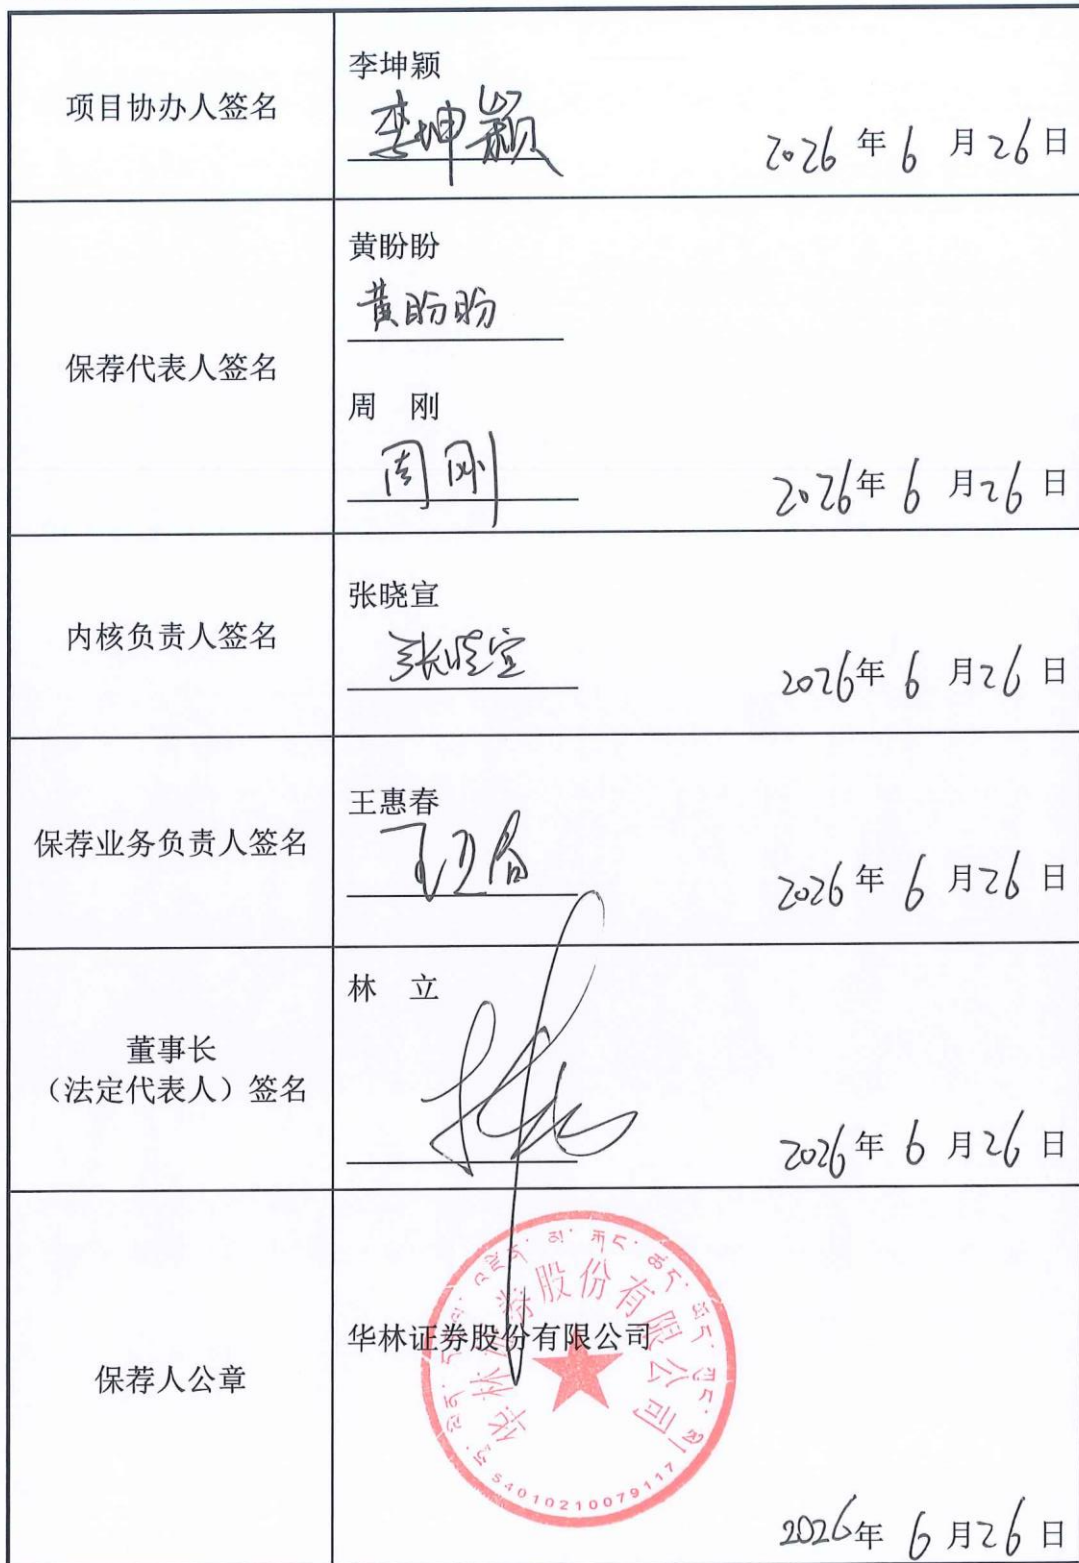 项目协办人签名
李坤颖
李坤颖
2026 年 6 月 26 日
保荐代表人签名
黄盼盼
黄盼盼
周 刚
周刚
2026年 6 月 26 日
内核负责人签名
张晓宣
张晓宣
2026年 6 月 26 日
保荐业务负责人签名
王惠春
2026 年 6 月 26 日
董事长
（法定代表人）签名
林 立
2026年 6 月 26 日
保荐人公章
华林证券股份有限公司
华林证券股份有限公司
54010210079117
2026年 6 月 26 日